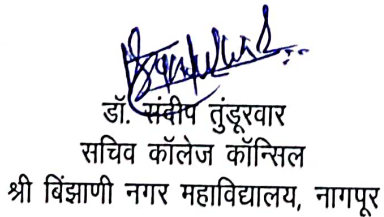 डॉ. संदीप तुंडूरवार
सचिव कॉलेज कॉन्सिल
श्री बिंझाणी नगर महाविद्यालय, नागपूर